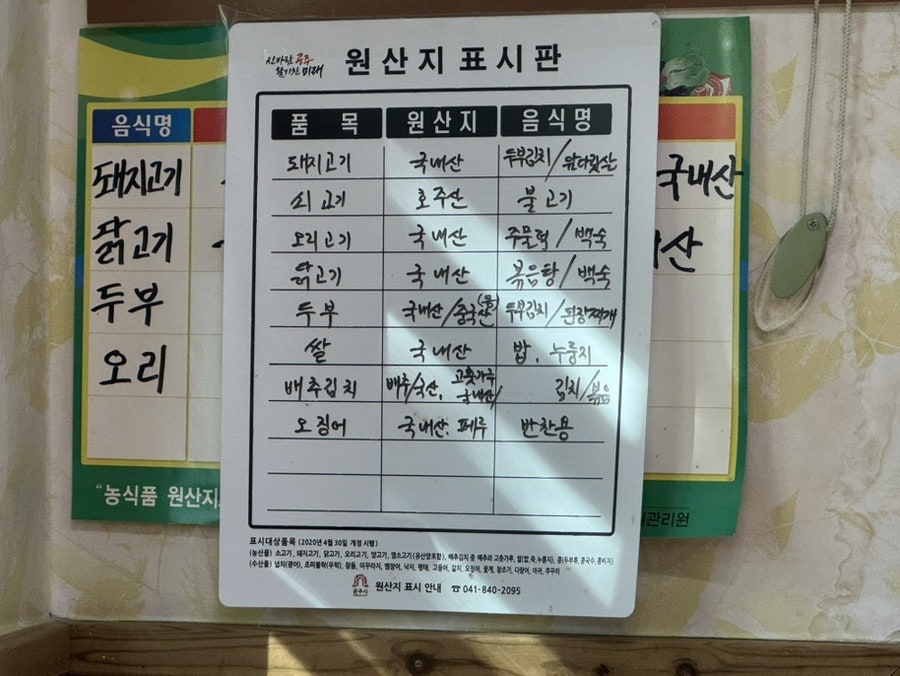 신바람 공주
활기찬 미래
원산지표시판
품 목 원산지 음식명
돼지고기 국내산 두부김치/앞다릿살
쇠고기 호주산 불고기
오리고기 국내산 주물럭/백숙
닭고기 국내산 볶음탕/백숙
두부 국내산/중국산(콩) 두부김치/된장찌개
쌀 국내산 밥, 누룽지
배추김치 배추/국산, 고춧가루 국내산/ 김치/볶음
오징어 국내산, 페루 반찬용
표시대상품목 (2020년 4월 30일 개정 시행)
(농산물) 쇠고기, 돼지고기, 닭고기, 오리고기, 양고기, 염소고기(유산양포함), 배추김치 중 배추와 고춧가루, 쌀(밥,죽,누룽지), 콩(두부류, 콩국수, 콩비지)
(수산물) 넙치(광어), 조피볼락(우럭), 참돔, 미꾸라지, 뱀장어, 낙지, 명태, 고등어, 갈치, 오징어, 꽃게, 참조기, 다랑어, 아귀, 쭈꾸미
공주시 원산지 표시 안내 ☎ 041-840-2095
음식명
돼지고기 국내산
닭고기 산
두부
오리
"농식품 원산지
관리원